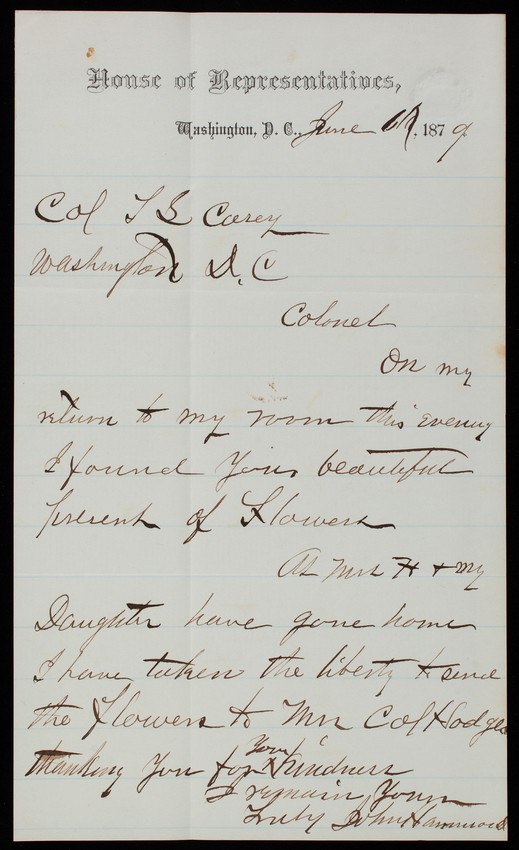 House of Representatives,
Washington, D. C., June 17, 1879
Col T L Casey
Washington D. C
Colonel
On my
return to my room this Evening
I found Your beautiful
present of Flowers
As Mrs H & my
Daughter have gone home
I have taken the liberty to send
the Flowers to Mrs Col Hodges
thanking You for Your Kindness
I remain Yours
Truly John Hammond